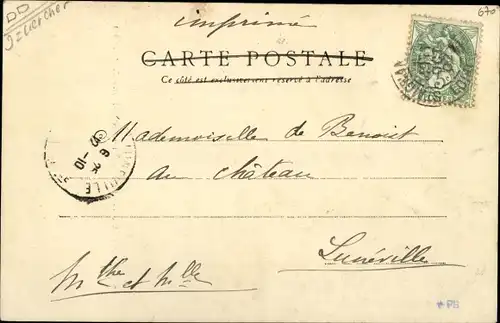 imprimé
670
CARTE POSTALE
Ce côté est exclusivement réservé à l'adresse
Mademoiselle de Benoist
au château
Lunéville
Mthe et Mlle
*PB